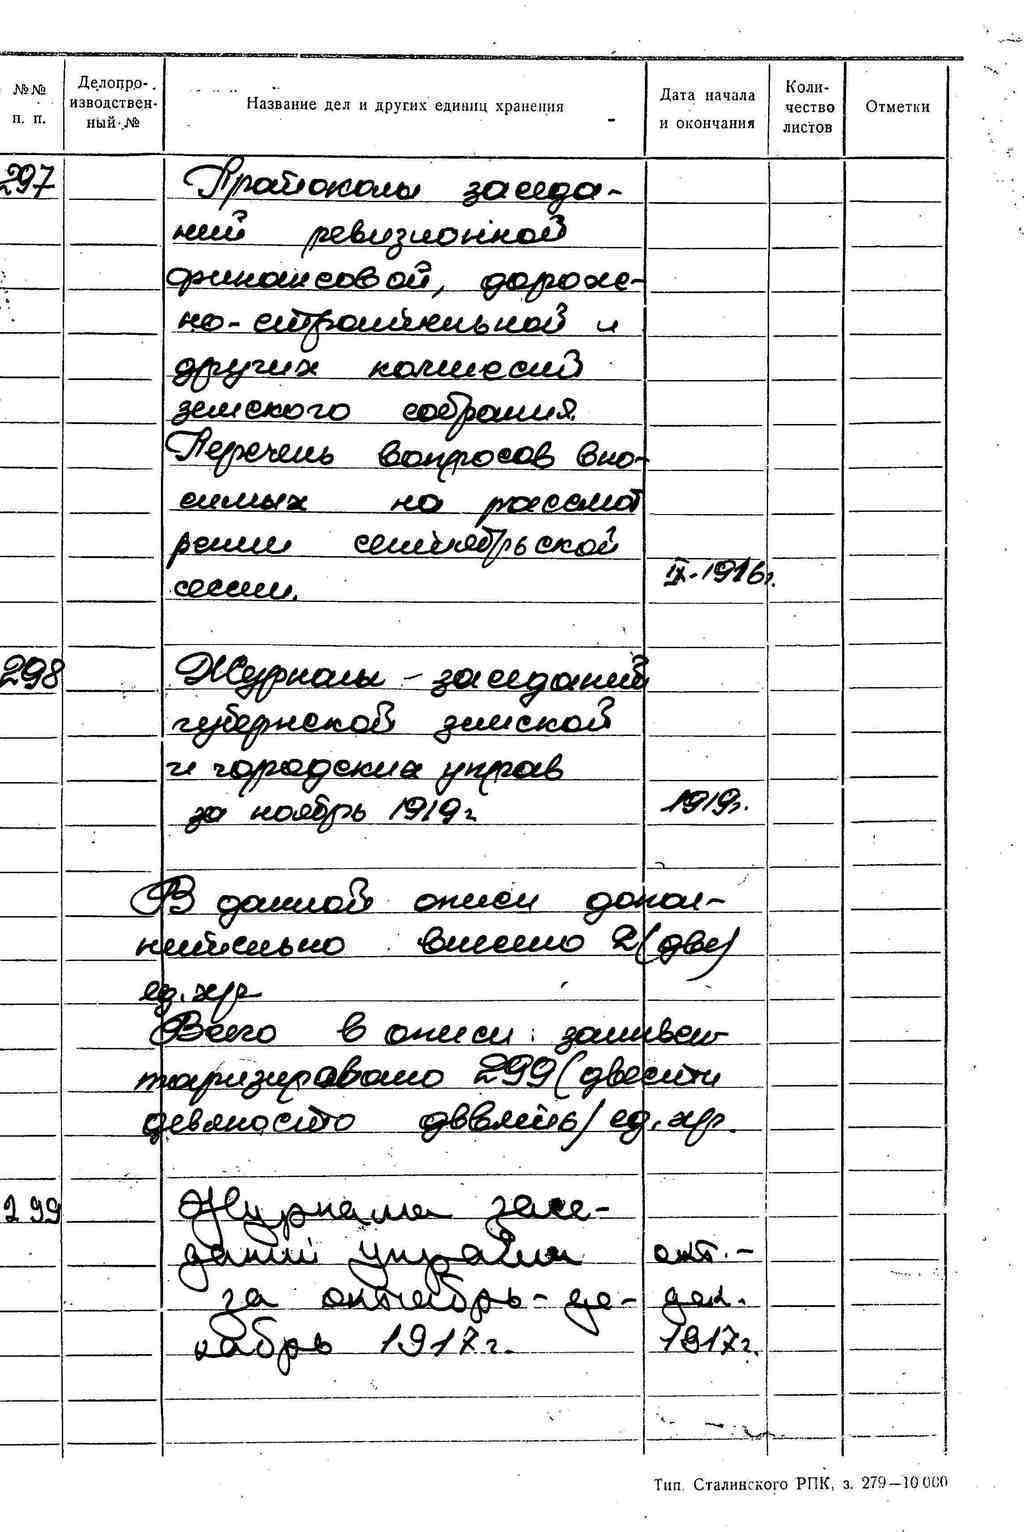 №№ п. п.
Делопро-
изводствен-
ный №
Название дел и других единиц хранения
Дата начала
и окончания
Коли-
чество
листов
Отметки
297
Протоколы заседа-
ний ревизионной
финансовой, дорож-
но-строительной и
других комиссий
земского собрания.
Перечень вопросов вно-
симых на рассмот
рении сентябрьской
сессии.
IX-1916г.
298
Журналы - заседаний
губернской земской
и городских управ
за ноябрь 1919г
1919г.
В данной описи допол-
нительно внесено 2(две)
ед. хр
Всего в описи: заинвен-
таризировано 299 (двести
девяносто девять) ед. хр.
299
Журналы засе-
даний управы
окт.-
за октябрь-де-
дек.
кабрь 1917г.
1917г.
Тип. Сталинского РПК, з. 279—10 000